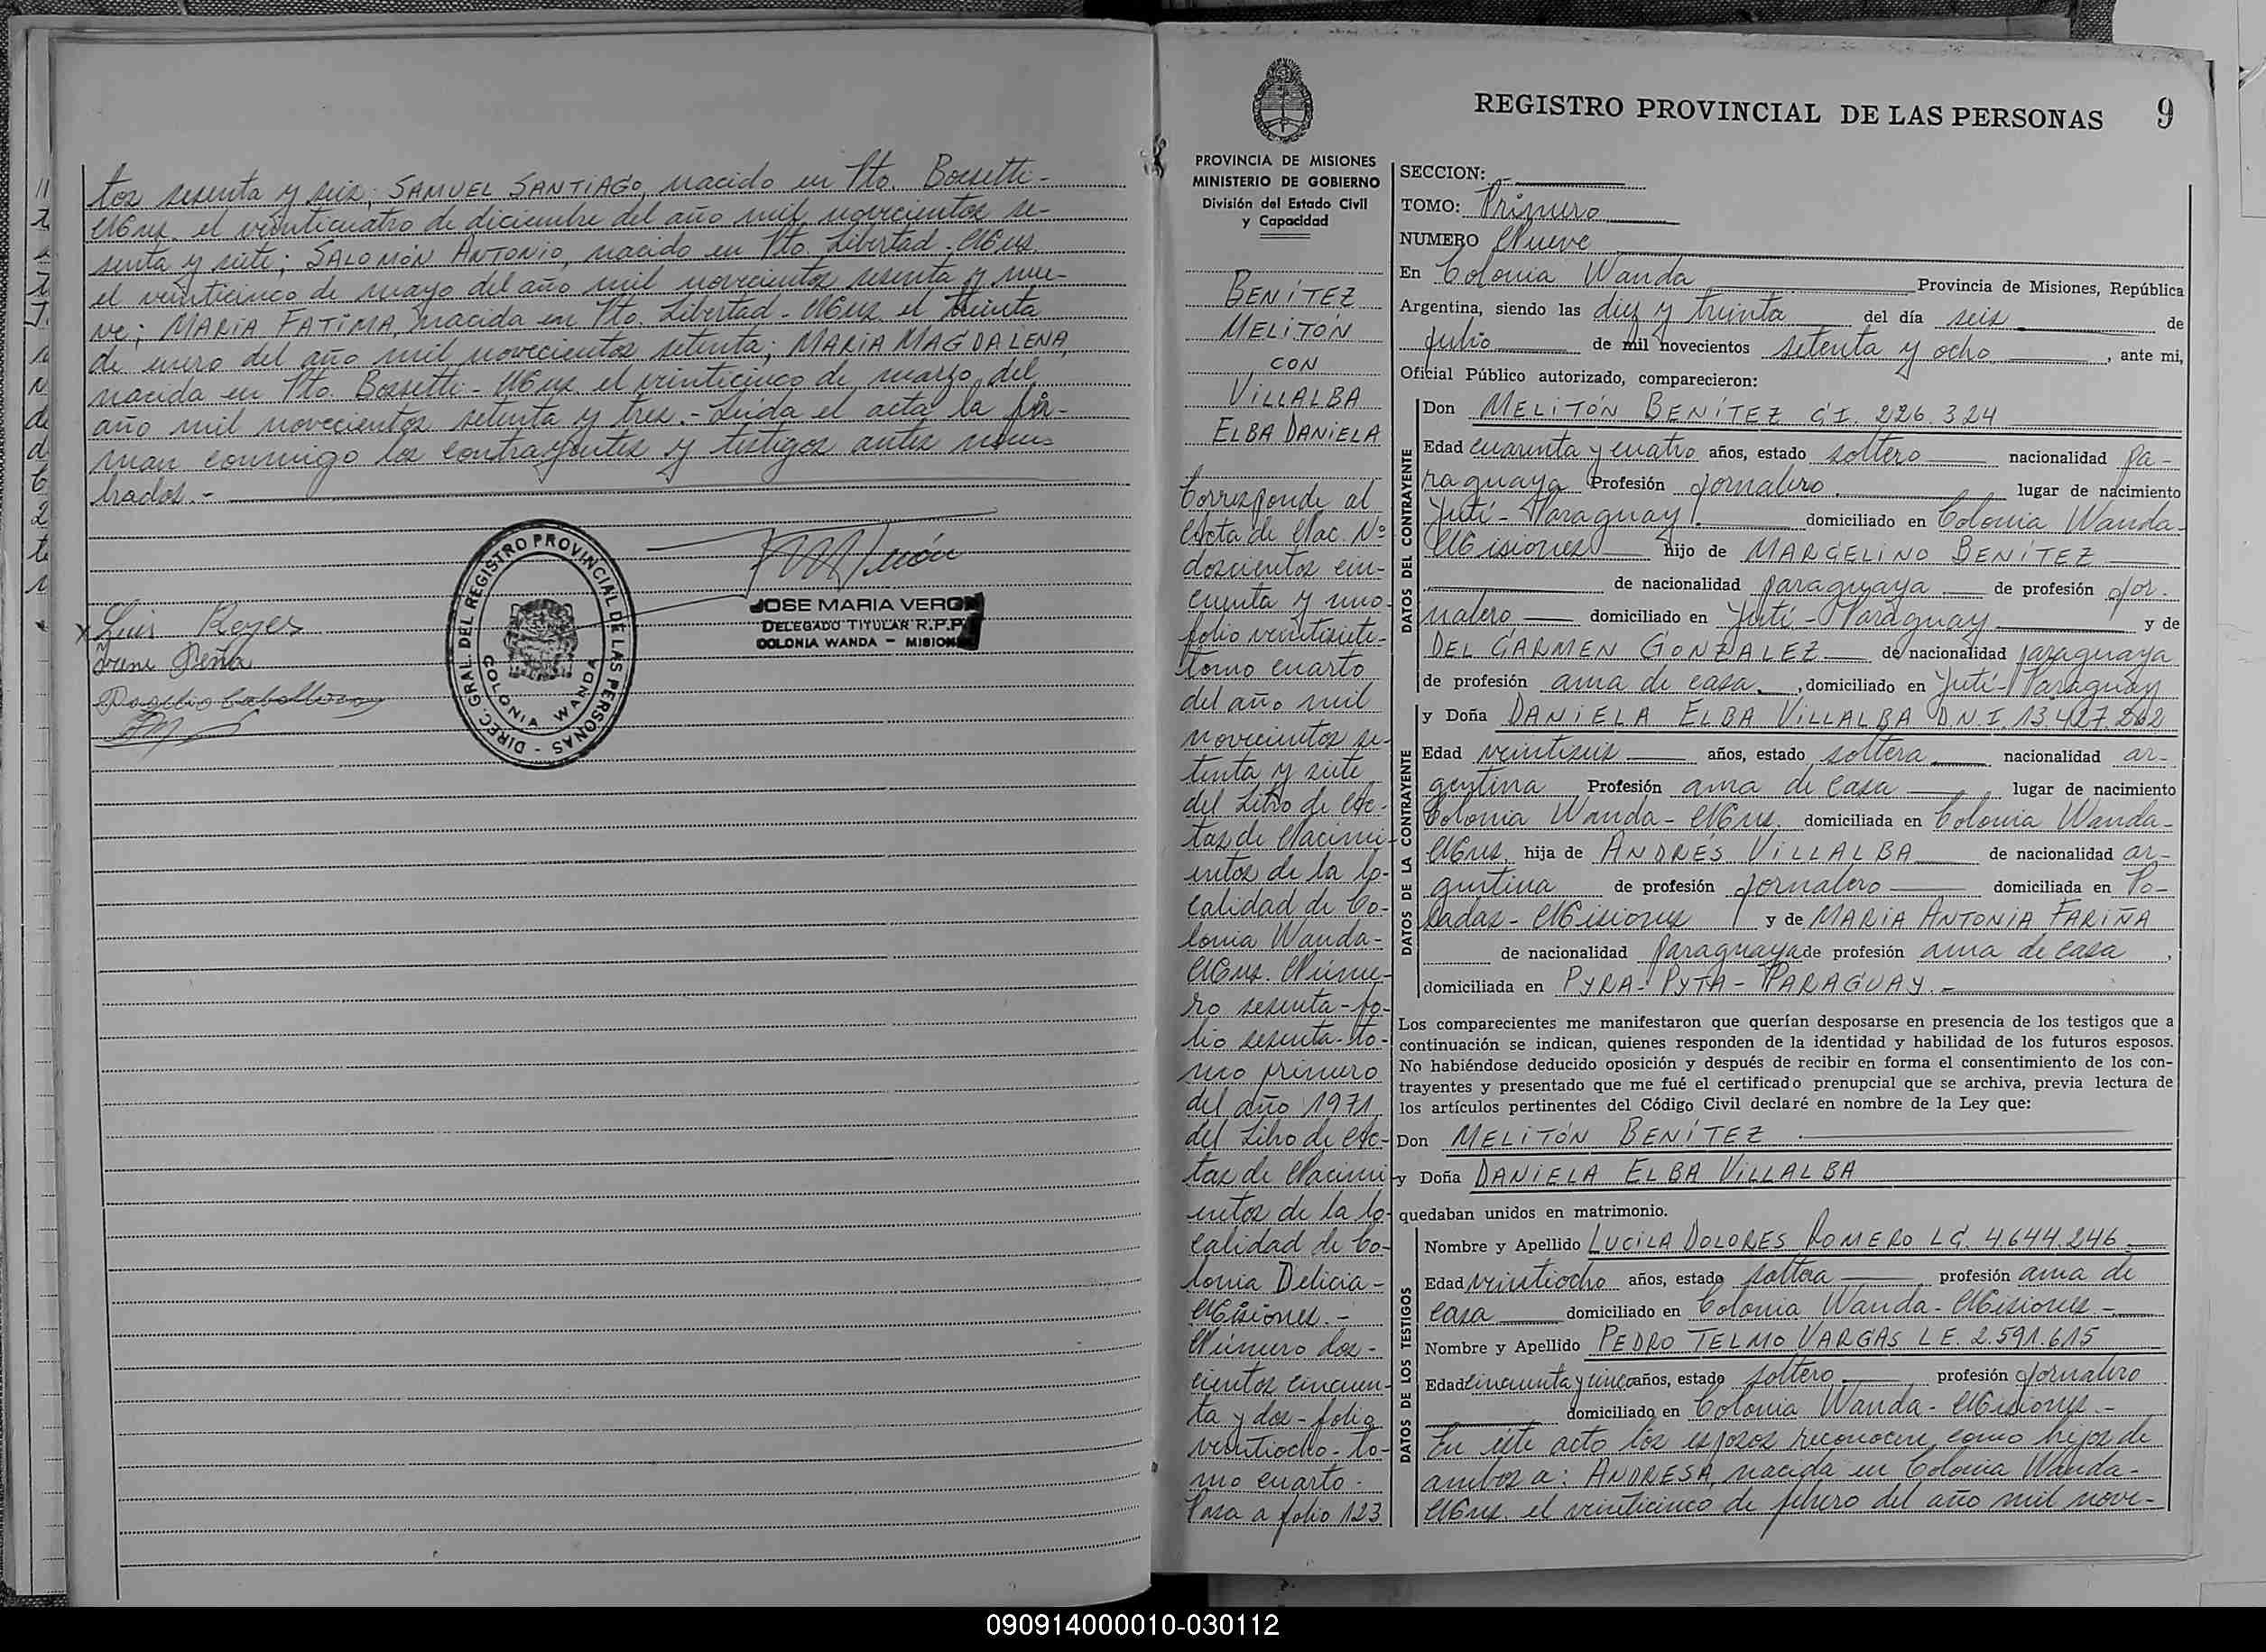 tos sesenta y seis; SAMUEL SANTIAGO, nacido en Pto. Bossetti-
Mnes. el veinticuatro de diciembre del año mil novecientos se-
senta y siete; SALOMÓN ANTONIO, nacido en Pto. Libertad-Mnes.
el veinticinco de mayo del año mil novecientos sesenta y nue-
ve; MARIA FATIMA, nacida en Pto. Libertad-Mnes. el treinta
de enero del año mil novecientos setenta; MARIA MAGDALENA,
nacida en Pto. Bossetti-Mnes. el veinticinco de marzo del
año mil novecientos setenta y tres.- Leída el acta la fir-
man conmigo los contrayentes y testigos antes nom-
brados.-
Luis Reyes
Irene Peña
DIREC. GRAL. DEL REGISTRO PROVINCIAL DE LAS PERSONAS -
COLONIA WANDA
JOSE MARIA VERON
DELEGADO TITULAR R.P.P.
COLONIA WANDA - MISIONES
REGISTRO PROVINCIAL DE LAS PERSONAS 9
PROVINCIA DE MISIONES
MINISTERIO DE GOBIERNO
División del Estado Civil
y Capacidad
BENÍTEZ
MELITÓN
CON
VILLALBA
ELBA DANIELA
Corresponde al
Acta de Nac. Nº
doscientos cin-
cuenta y uno
folio veintisiete-
tomo cuarto
del año mil
novecientos se-
tenta y siete
del Libro de Ac-
tas de Nacimi-
entos de la lo-
calidad de Co-
lonia Wanda-
Mnes. Núme-
ro sesenta-fo-
lio sesenta-to-
mo primero
del año 1971
del Libro de Ac-
tas de Nacimi-
entos de la lo-
calidad de Co-
lonia Delicia-
Misiones.-
Número dos-
cientos cincuen-
ta y dos-folio
veintiocho-to-
mo cuarto.
Pasa a folio 123
SECCION:
TOMO: Primero
NUMERO Nueve
En Colonia Wanda Provincia de Misiones, República
Argentina, siendo las diez y treinta del día seis de
Julio de mil novecientos setenta y ocho, ante mi,
Oficial Público autorizado, comparecieron:
DATOS DEL CONTRAYENTE
Don MELITÓN BENÍTEZ C.I. 226.324
Edad cuarenta y cuatro años, estado soltero nacionalidad pa-
raguaya Profesión jornalero lugar de nacimiento
Yutí-Paraguay domiciliado en Colonia Wanda-
Misiones hijo de MARCELINO BENÍTEZ
de nacionalidad paraguaya de profesión jor-
nalero domiciliado en Yutí-Paraguay y de
DEL CARMEN GONZALEZ de nacionalidad paraguaya
de profesión ama de casa, domiciliado en Yutí-Paraguay
DATOS DE LA CONTRAYENTE
y Doña DANIELA ELBA VILLALBA D.N.I. 13.427.262
Edad veintiseis años, estado soltera nacionalidad ar-
gentina Profesión ama de casa lugar de nacimiento
Colonia Wanda-Mnes. domiciliada en Colonia Wanda-
Mnes. hija de ANDRES VILLALBA de nacionalidad ar-
gentina de profesión jornalero domiciliada en Po-
sadas-Misiones y de MARIA ANTONIA FARIÑA
de nacionalidad paraguaya de profesión ama de casa,
domiciliada en PYRA-PYTA-PARAGUAY.-
Los comparecientes me manifestaron que querían desposarse en presencia de los testigos que a
continuación se indican, quienes responden de la identidad y habilidad de los futuros esposos.
No habiéndose deducido oposición y después de recibir en forma el consentimiento de los con-
trayentes y presentado que me fué el certificado prenupcial que se archiva, previa lectura de
los artículos pertinentes del Código Civil declaré en nombre de la Ley que:
Don MELITÓN BENÍTEZ
y Doña DANIELA ELBA VILLALBA
quedaban unidos en matrimonio.
DATOS DE LOS TESTIGOS
Nombre y Apellido LUCILA DOLORES ROMERO L.C. 4.644.246
Edad veintiocho años, estado soltera profesión ama de
casa domiciliado en Colonia Wanda-Misiones-
Nombre y Apellido PEDRO TELMO VARGAS L.E. 2.591.615
Edad cincuenta y cinco años, estado soltero profesión jornalero
domiciliado en Colonia Wanda-Misiones.-
En éste acto los esposos reconocen como hijos de
ambos a: ANDRESA, nacida en Colonia Wanda-
Mnes. el veinticinco de febrero del año mil nove-
090914000010-030112